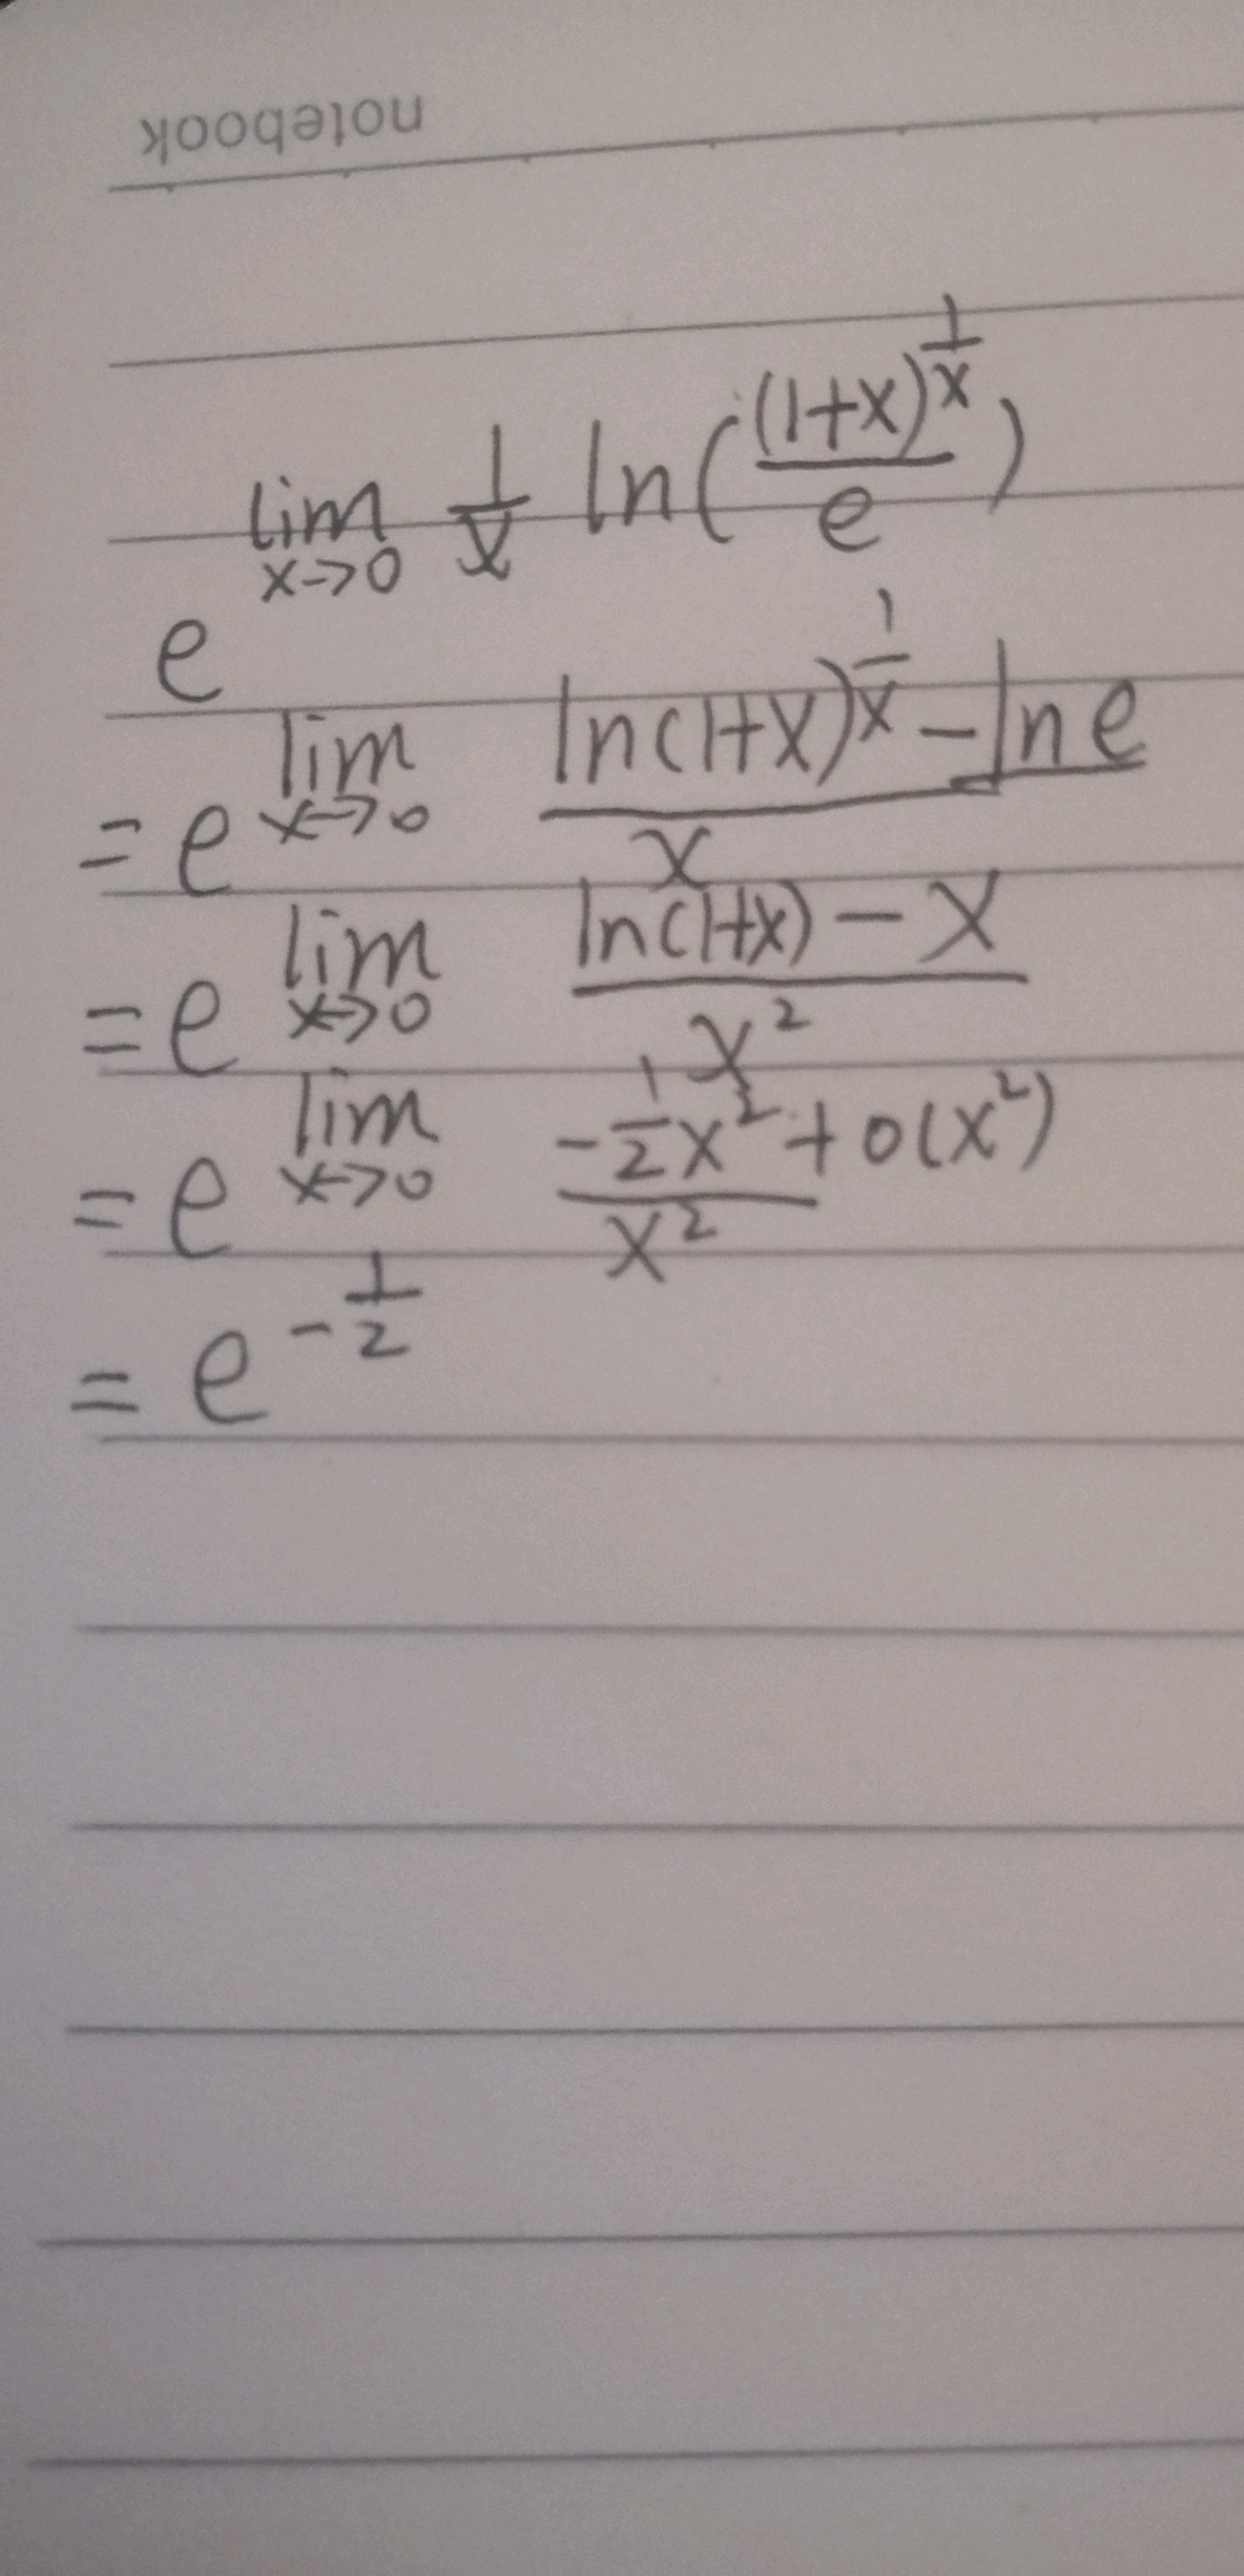 notebook
e^{lim_{x→0} \frac{1}{x} ln(\frac{(1+x)^{\frac{1}{x}}}{e})}
= e^{lim_{x→0} \frac{ln(1+x)^{\frac{1}{x}} - ln e}{x}}
= e^{lim_{x→0} \frac{ln(1+x) - x}{x^2}}
= e^{lim_{x→0} \frac{-\frac{1}{2}x^2 + o(x^2)}{x^2}}
= e^{-\frac{1}{2}}